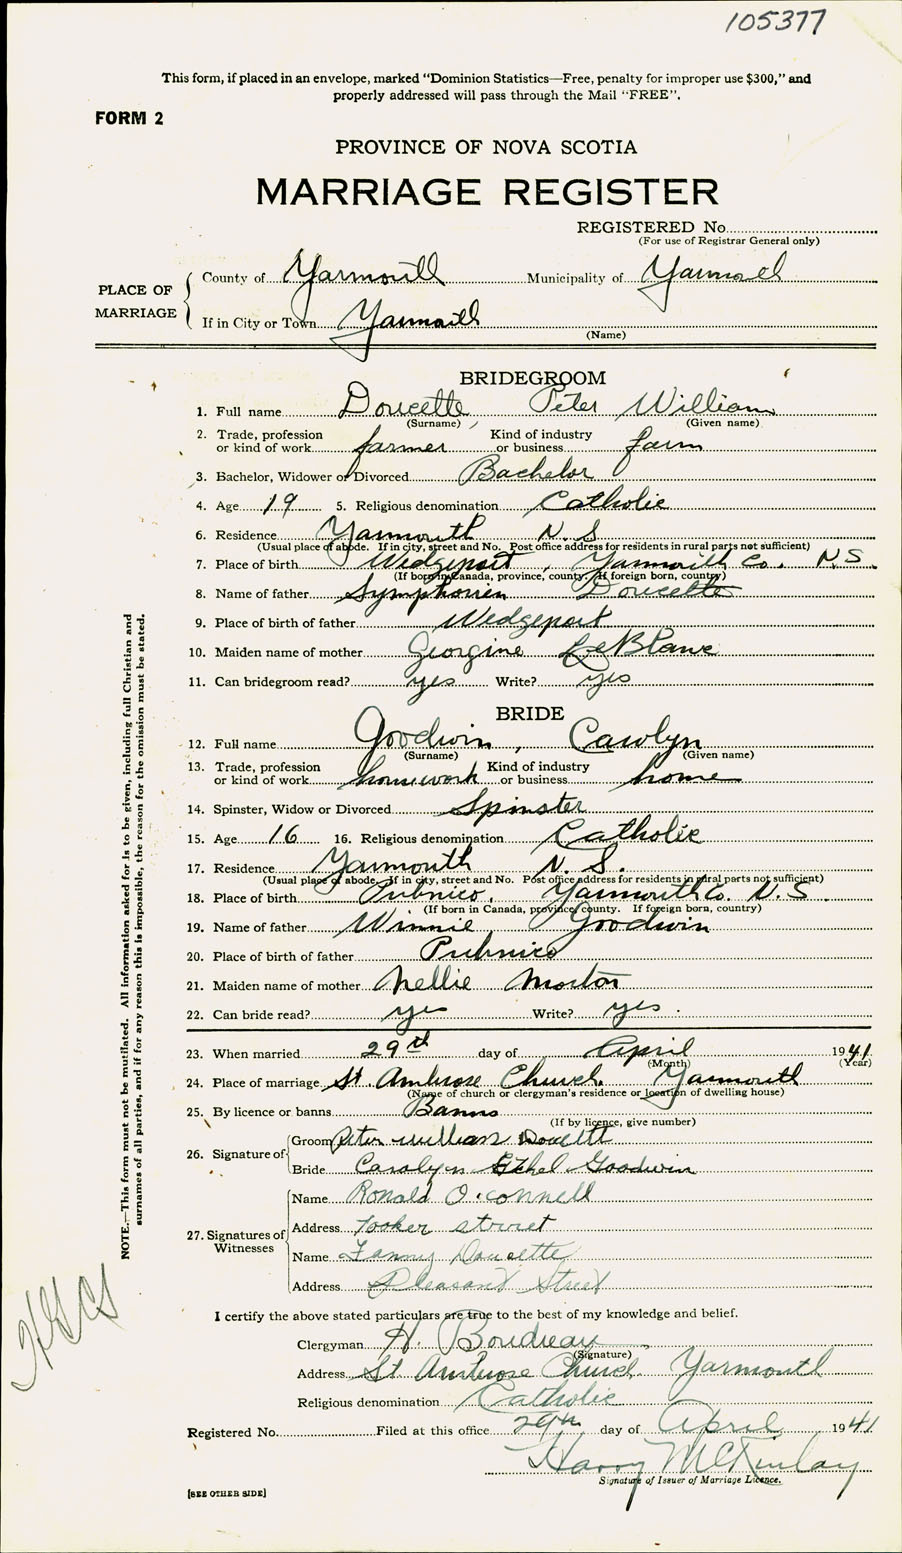 105377
This form, if placed in an envelope, marked "Dominion Statistics—Free, penalty for improper use $300," and
properly addressed will pass through the Mail "FREE".
FORM 2
PROVINCE OF NOVA SCOTIA
MARRIAGE REGISTER
REGISTERED No.
(For use of Registrar General only)
PLACE OF MARRIAGE
County of Yarmouth Municipality of Yarmouth
If in City or Town Yarmouth
(Name)
BRIDEGROOM
1. Full name Doucette, Peter William
(Surname) (Given name)
2. Trade, profession or kind of work farmer Kind of industry or business farm
3. Bachelor, Widower or Divorced Bachelor
4. Age 19 5. Religious denomination Catholic
6. Residence Yarmouth N. S
(Usual place of abode. If in city, street and No. Post office address for residents in rural parts not sufficient)
7. Place of birth Wedgeport, Yarmouth Co. N.S.
(If born in Canada, province, county. If foreign born, country)
8. Name of father Symphorien Doucette
9. Place of birth of father Wedgeport
10. Maiden name of mother Georgine LeBlanc
11. Can bridegroom read? yes Write? yes
BRIDE
12. Full name Goodwin, Carolyn
(Surname) (Given name)
13. Trade, profession or kind of work homework Kind of industry or business home
14. Spinster, Widow or Divorced Spinster
15. Age 16 16. Religious denomination Catholic
17. Residence Yarmouth N. S.
(Usual place of abode. If in city, street and No. Post office address for residents in rural parts not sufficient)
18. Place of birth Pubnico, Yarmouth Co. N.S.
(If born in Canada, province, county. If foreign born, country)
19. Name of father Winnie Goodwin
20. Place of birth of father Pubnico
21. Maiden name of mother Nellie Morton
22. Can bride read? yes Write? yes.
23. When married 29th day of April 1941
(Month) (Year)
24. Place of marriage St. Ambrose Church, Yarmouth
(Name of church or clergyman's residence or location of dwelling house)
25. By licence or banns Banns
(If by licence, give number)
26. Signature of Groom Peter William Doucett
Bride Carolyn Ethel Goodwin
27. Signatures of Witnesses
Name Ronald O'connell
Address Tooker street
Name Fanny Doucette
Address Pleasant Street
I certify the above stated particulars are true to the best of my knowledge and belief.
Clergyman H. Boudreau
(Signature)
Address St. Ambrose Church Yarmouth
Religious denomination Catholic
Registered No. Filed at this office 29th day of April 1941
Harry McKinlay
Signature of Issuer of Marriage Licence.
[SEE OTHER SIDE]
NOTE.—This form must not be mutilated. All information asked for is to be given, including full Christian and
surnames of all parties, and if for any reason this is impossible, the reason for the omission must be stated.